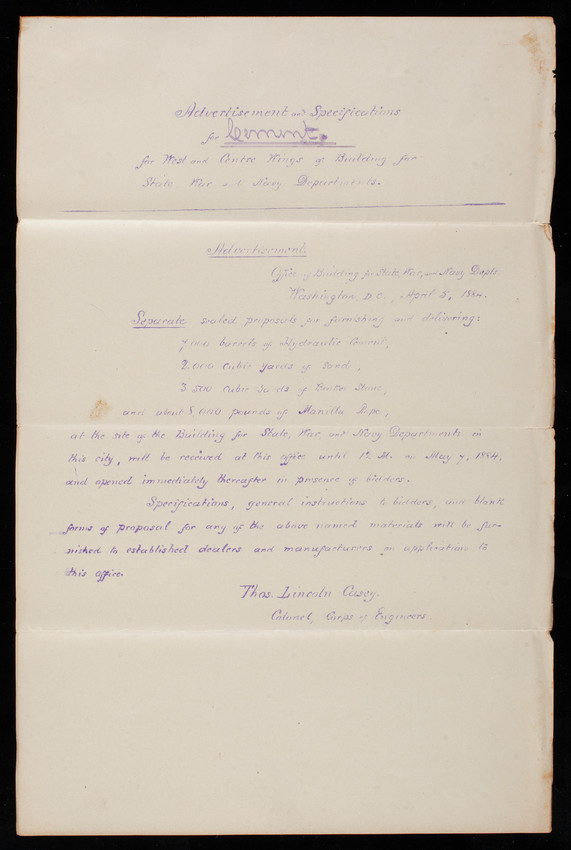 Advertisement and Specifications
for Cement.
for West and Center Wings of Building for
State, War and Navy Departments.
Advertisement.
Office of Building for State, War, and Navy Depts.
Washington, D.C., April 5, 1884.
Separate sealed proposals for furnishing and delivering:
7,000 barrels of Hydraulic Cement,
2,000 cubic yards of Sand,
3,500 cubic yards of Broken Stone,
and about 8,000 pounds of Manilla Rope,
at the site of the Building for State, War and Navy Departments in
this city, will be received at this office until 12 M. on May 7, 1884,
and opened immediately thereafter in presence of bidders.
Specifications, general instructions to bidders, and blank
forms of proposal for any of the above named materials will be fur-
nished to established dealers and manufacturers on application to
this office.
Thos. Lincoln Casey.
Colonel, Corps of Engineers.